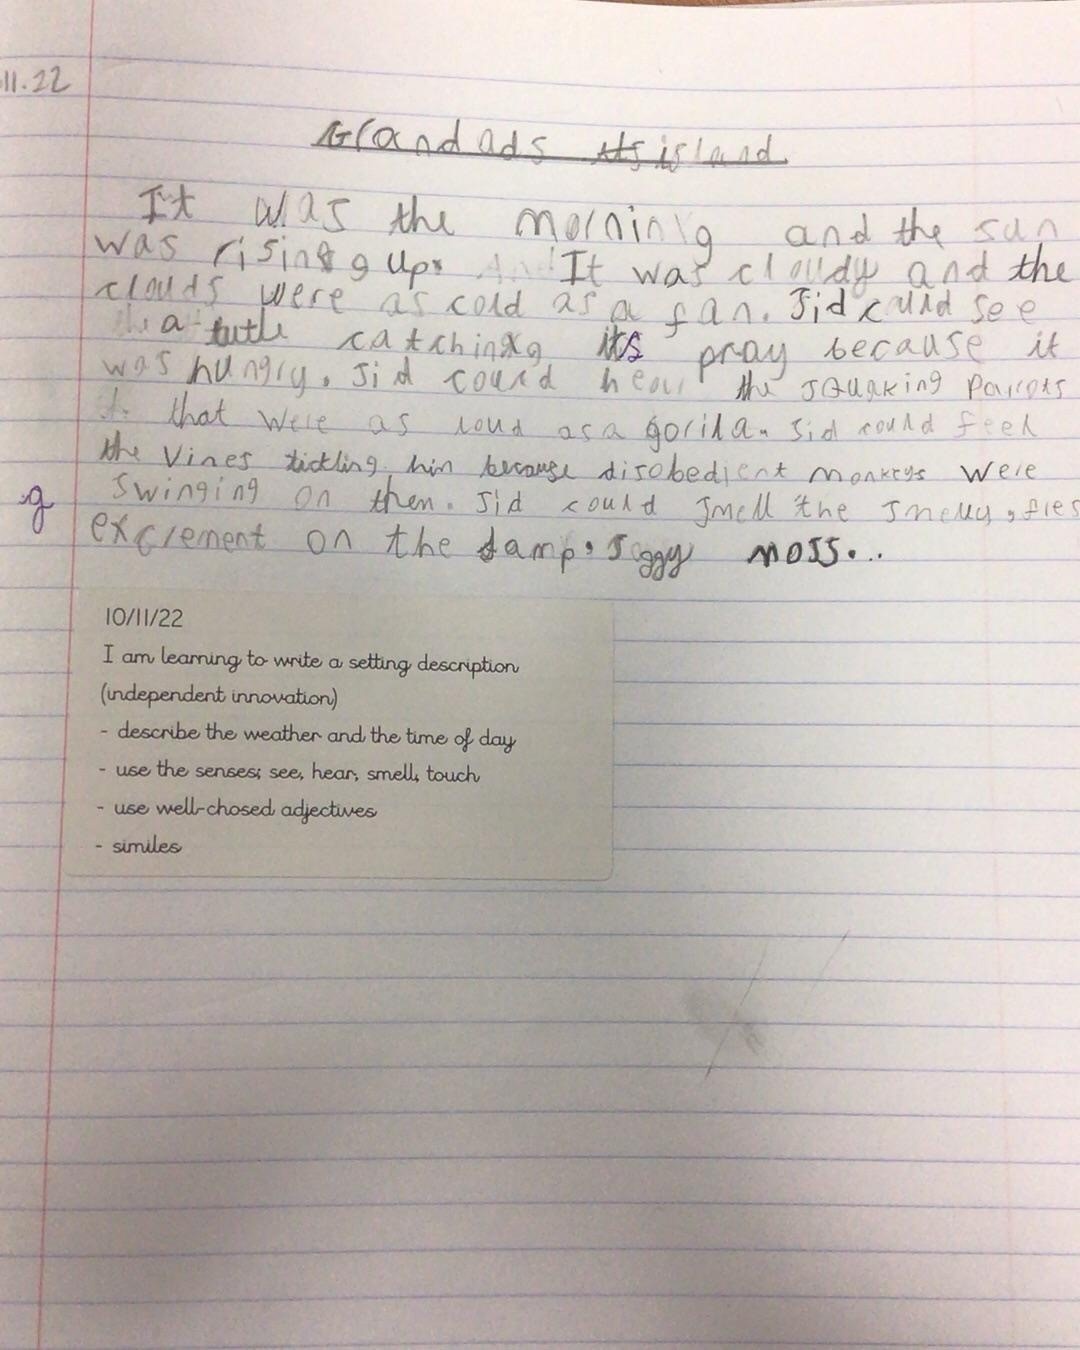 11.22
Grandads its island
It was the morning and the sun
was rising up. It was cloudy and the
clouds were as cold as a fan. Sid could see
a turtle catching its pray because it
was hungry. Sid could hear the squaking parrots
that were as loud as a gorila. Sid could feel
the vines tickling him because disobedient monkeys were
g swinging on them. Sid could smell the smelly,
excrement on the damp, soggy moss...
10/11/22
I am learning to write a setting description
(independent innovation)
- describe the weather and the time of day
- use the senses; see, hear, smell, touch
- use well-chosed adjectives
- similes